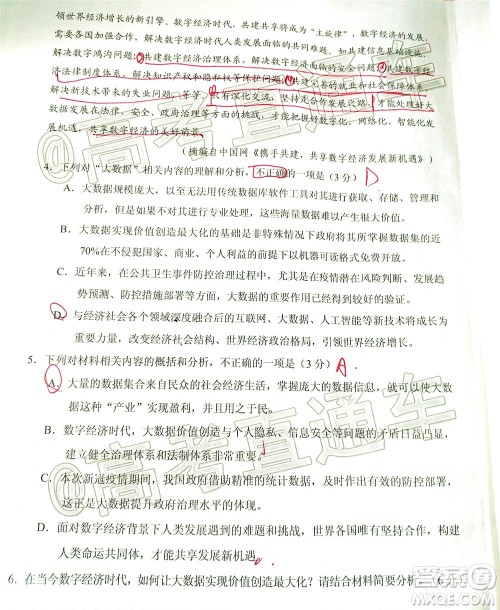 领世界经济增长的新引擎。数字经济时代，共建共享成为“主旋律”，
需要各国加强合作。数字经济时代人类发展面临的共同难题，如
解决数字鸿沟问题；共建数字经济治理体系，解决数字面临的安全问题；共建数字经
济法律制度体系，解决知识产权和隐私权等保护问题；共建完善的就业和社会保障体系，
解决新技术带来的失业问题，等等。只有深化交流，坚持走合作发展之路，才能处理好大
数据发展在法律、安全、就业等方面的挑战，才能把握好数字化、网络化、智能化
发展机遇，共享数字经济的美好前景。
（摘编自中国网《携手共建，共享数字经济发展新机遇》）
4．下列对“大数据”相关内容的理解和分析，不正确的一项是（3 分）D
A．大数据规模庞大，以至无法用传统数据库软件工具对其进行获取、存储、管理
和分析，而对其进行专业处理，这些海量数据才能发挥出很大价值。
B．大数据价值创造最大化的基础是非特殊情况下政府将其所掌握数据集的近
70%在不侵犯国家、社会、个人利益的前提下以机器可读格式免费开放。
C．近年来，在公共卫生事件防控治理过程中，尤其是在疫情潜在风险判断、发展趋
势预测、防控措施部署等方面，大数据的重要作用已经得到较好的验证。
D．与经济社会各个领域深度融合后的互联网、大数据、人工智能等新技术具有重
要作用，会改变经济社会结构、世界经济政治格局，引领世界经济增长。
5．下列对材料相关内容的概括和分析，不正确的一项是（3 分）A
A．大量的数据集合来自民众的社会经济生活，掌握庞大的数据信息，就可以使大数
据这种“产业”实现盈利，并为国家经济发展做出重要贡献。
B．数字经济时代，大数据价值创造与个人隐私、信息安全等问题的矛盾日益凸显，
建立健全法治体系和法制体系非常重要。
C．本次新冠疫情期间，我国政府借助精准的统计数据，及时作出有效的防控部署，
这是大数据提升政府治理水平的体现。
D．面对数字经济背景下人类发展遇到的难题和挑战，世界各国唯有共同努力，构建
人类命运共同体，才能共享发展新机遇。
6．在当今数字经济时代，如何让大数据实现价值创造最大化？请结合材料简要分析。（6
@高考直通车
@高考直通车